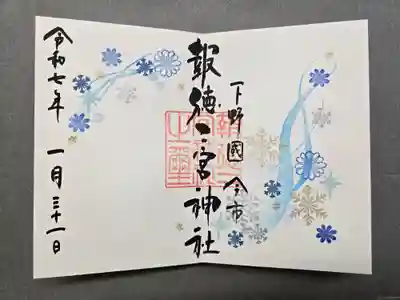 下野國 今市
報徳二宮神社
令和七年 一月三十一日